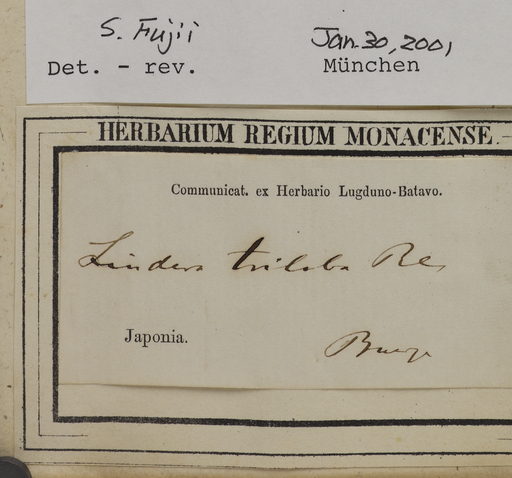 S. Fujii Jan. 30, 2001
Det. - rev. München
HERBARIUM REGIUM MONACENSE
Communicat. ex Herbario Lugduno-Batavo.
Lindera triloba Bl.
Japonia.